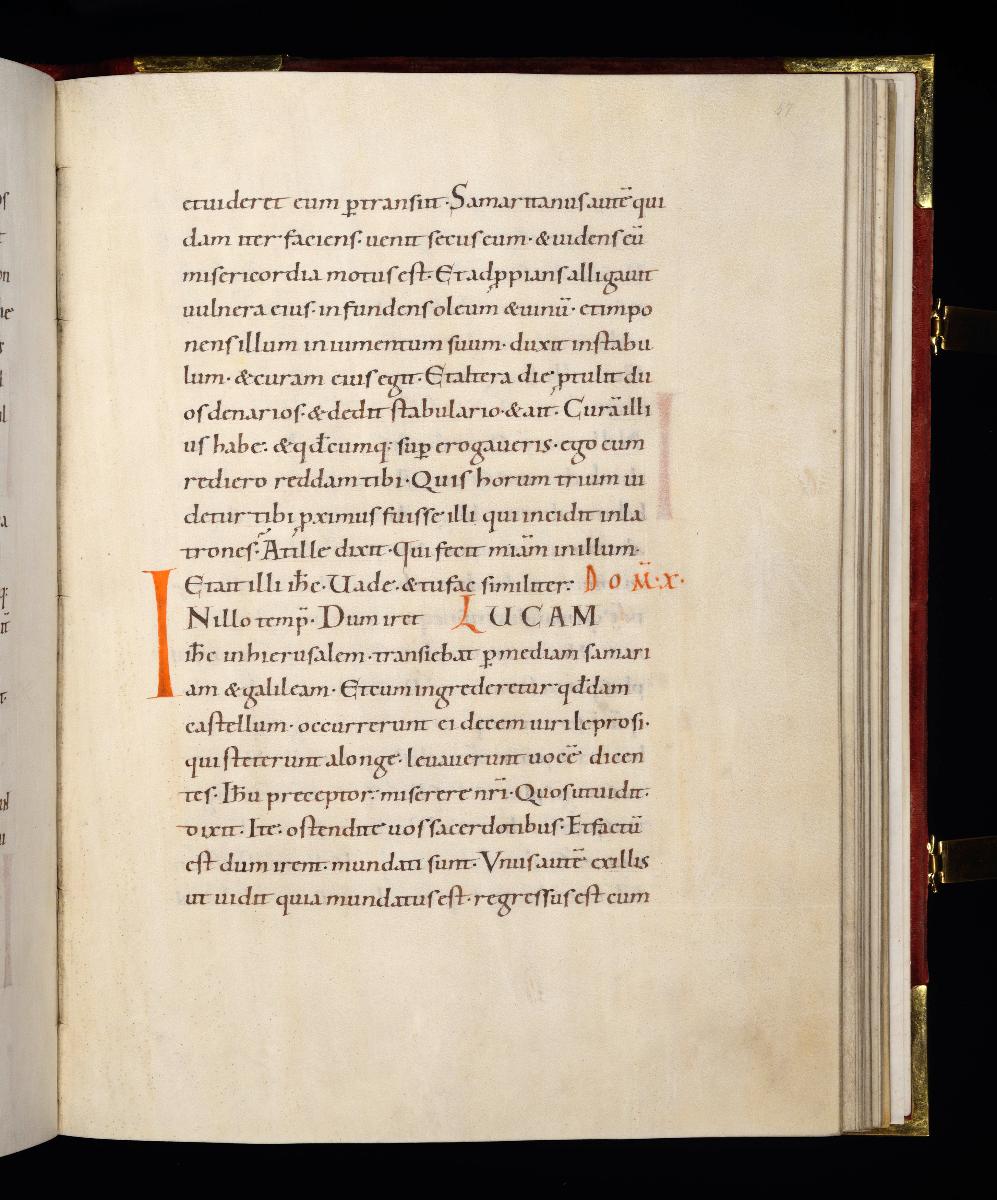 etuideret eum ꝑtransiit· Samaritanus autē qui
dam iter faciens· uenit secus eum· & uidens eū
misericordia motus est· Et adp̱pians alligauit
uulnera eius· infundens oleum & uinū· et impo
nens illum in iumentum suum· duxit in stabu
lum· & curam eius egit· Et altera die ꝓtulit du
os denarios· & dedit stabulario· & ait· Curā illi
us habe· & qđcumq; suꝑ erogaueris· ego cum
rediero reddam tibi· Quis horum trium ui
detur tibi ꝓximus fuisse illi qui incidit in la
trones· At ille dixit· Qui fecit miam̄ in illum·
Et ait illi ihc̄· Uade· & tu fac similiter· DOM̄·X·
INillo temp̄· Dum iret LUCAM
ihc̄ in hierusalem· transiebat ꝑ mediam samari
am & galileam· Et cum ingrederetur qđdam
castellum· occurrerunt ei decem uiri leprosi·
qui steterunt a longe· leuauerunt uocē dicen
tes· Ihū preceptor· miserere nr̄i· Quos ut uidit·
dixit· Ite· ostendite uos sacerdotibus· Et factū
est dum irent· mundati sunt· Vnus autē ex illis
ut uidit quia mundatus est· regressus est cum